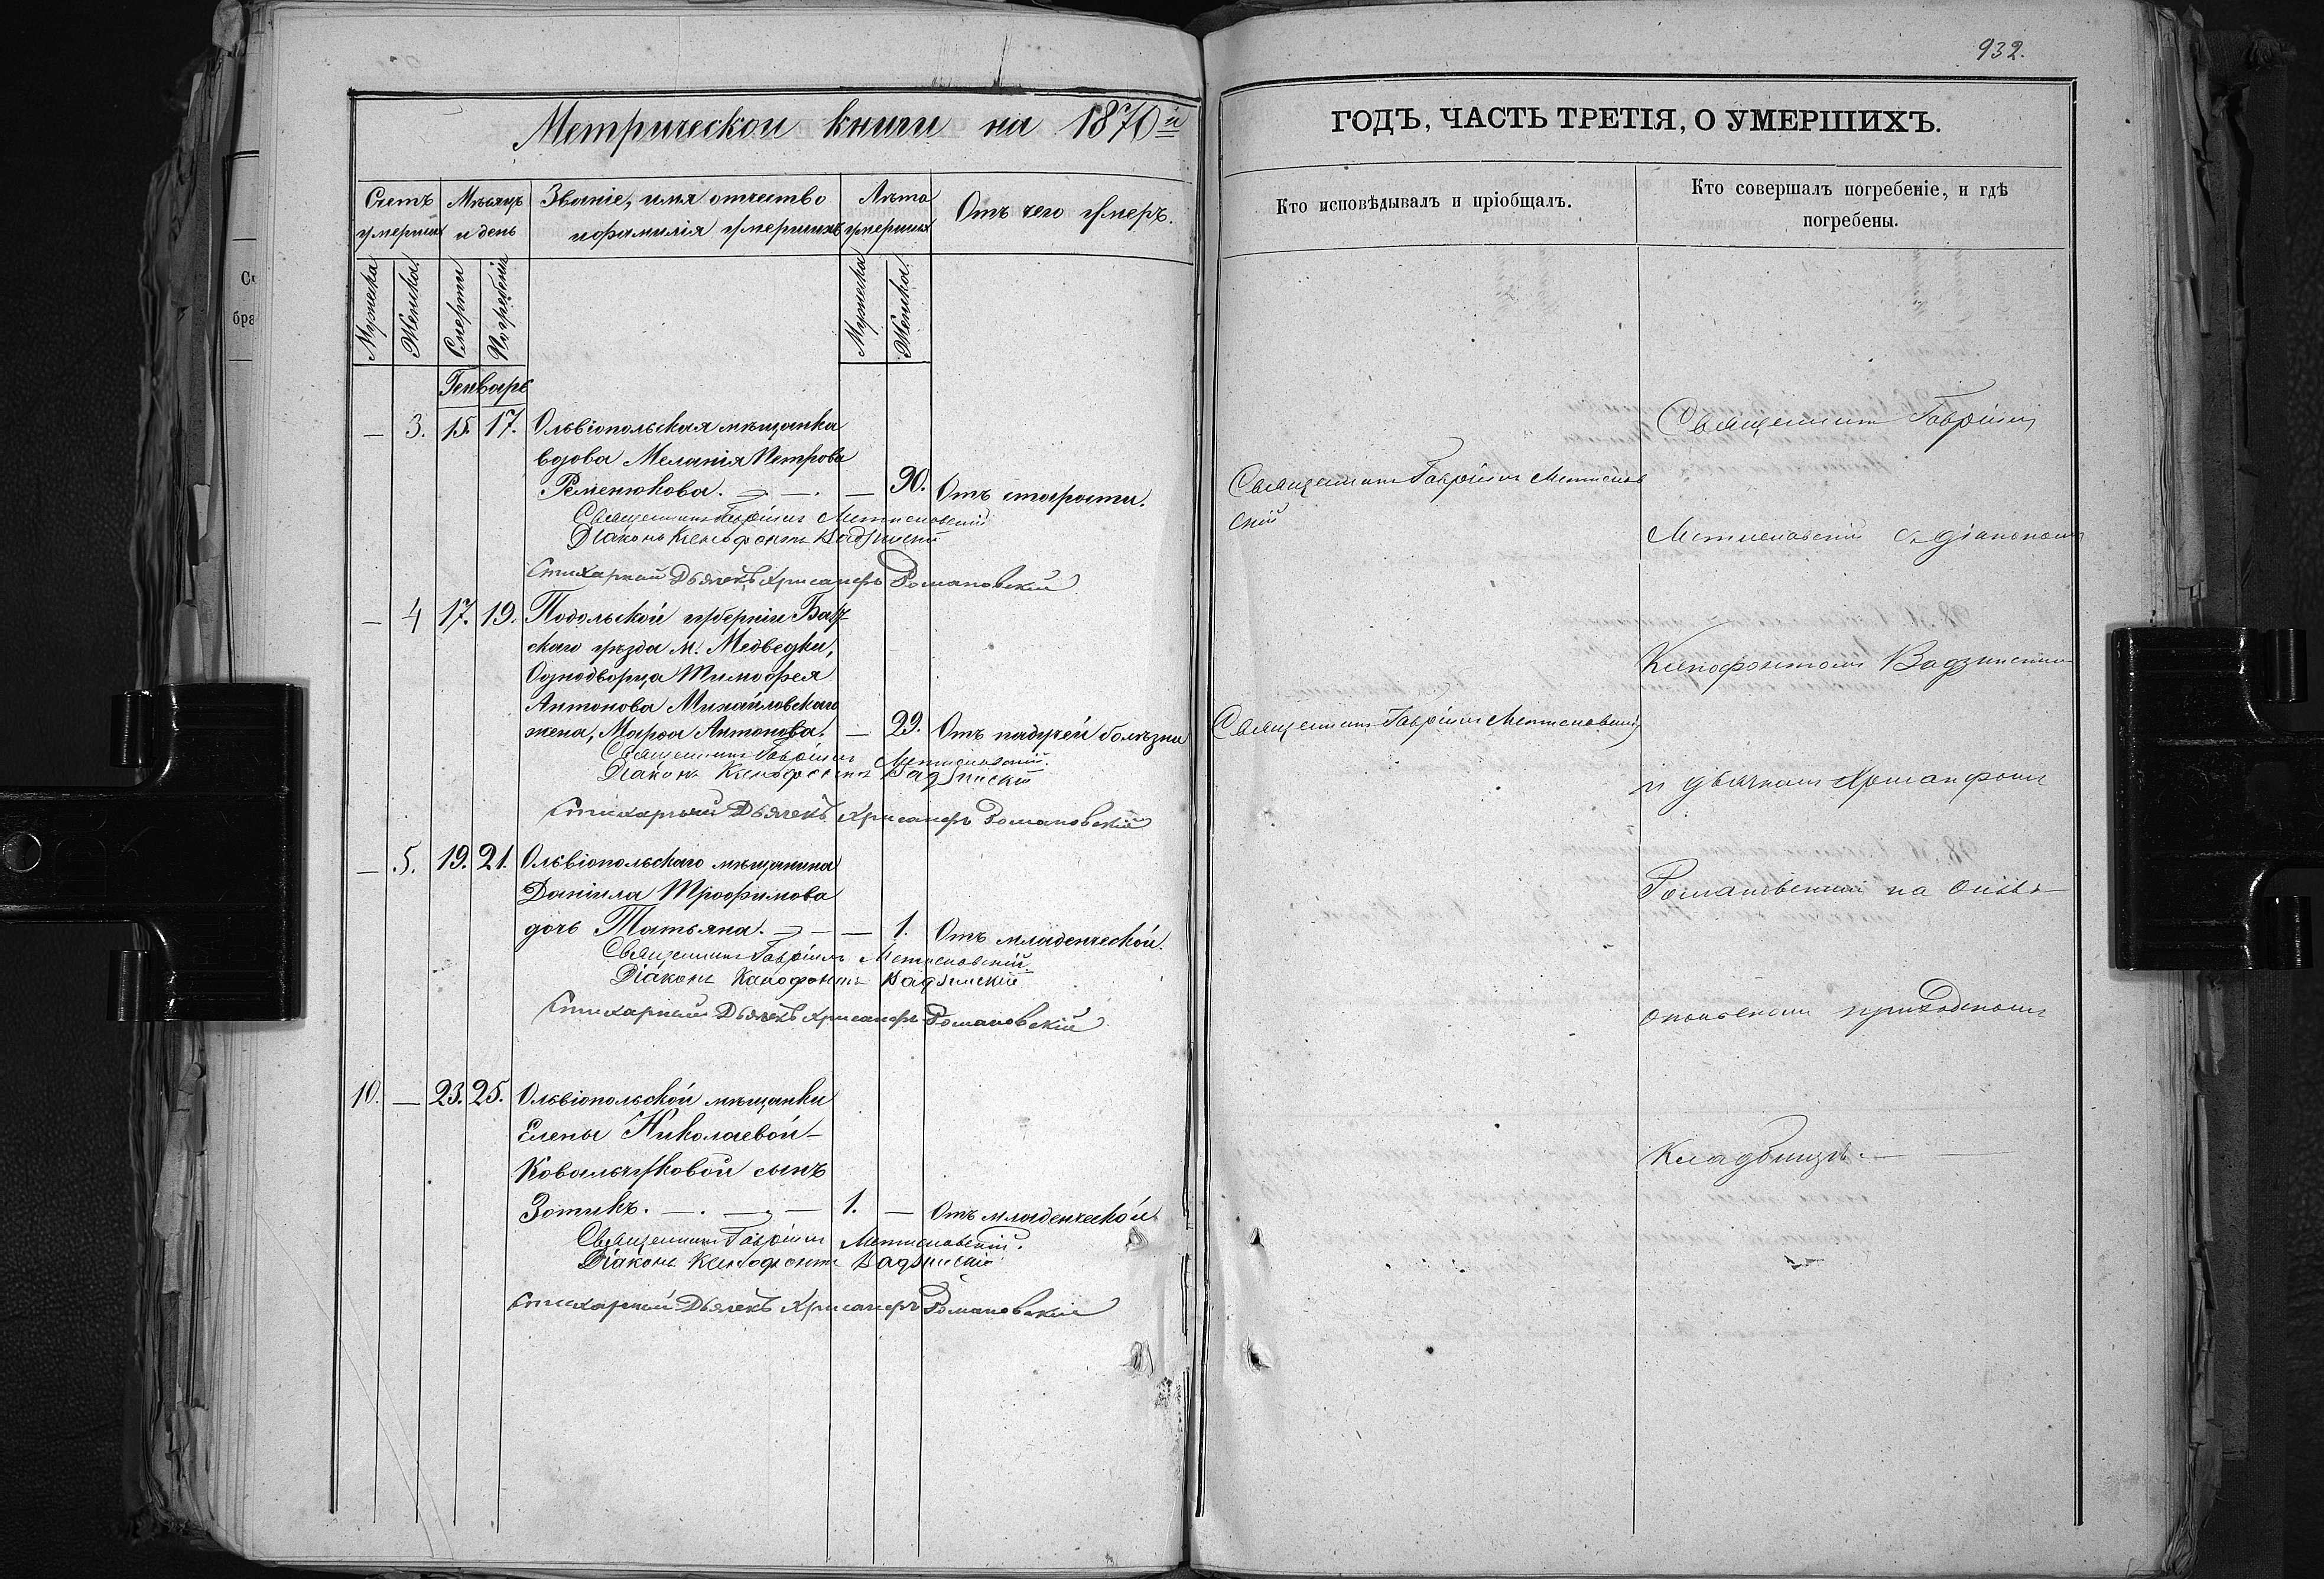 932.
Метрической книги на 1870й
ГОДЪ, ЧАСТЬ ТРЕТІЯ, О УМЕРШИХЪ.
Счетъ умершихъ
Мѣсяцъ и день
Званіе, имя отчество и фамилія умершихъ
Лѣта умершихъ
Отъ чего умеръ.
Кто исповѣдывалъ и пріобщалъ.
Кто совершалъ погребеніе, и гдѣ
погребены.
Мужеска
Женска
Смерти
Погребенія
Мужеска
Женска
Генварь
— 3. 15. 17. Ольвіопольская мѣщанка
вдова Меланія Петрова
Ременюкова. — — 90. Отъ старости.
Священникъ Гавріилъ Мстиславскій
Діаконъ Ксенофонтъ Вадзинскій
Стихарный Дьячекъ Хрисанфъ Романовскій
— 4 17. 19. Подольской губерніи Бал-
скаго уѣзда м. Медведки,
Однодворца Тимофея
Антонова Михайловскаго
жена, Марфа Антонова. — 22. Отъ падучей болѣзни
Священникъ Гавріилъ Мстиславскій.
Діаконъ Ксенофонтъ Вадзинскій
Стихарный Дьячекъ Хрисанфъ Романовскій
— 5. 19. 21. Ольвіопольскаго мѣщанина
Даніила Трофимова
дочь Татьяна. — — 1. Отъ младенческой.
Священникъ Гавріилъ Мстиславскій
Діаконъ Ксенофонтъ Вадзинскій
Стихарный Дьячекъ Хрисанфъ Романовскій
10. — 23. 25. Ольвіопольской мѣщанки
Елены Николаевой
Ковальчуковой сынъ
Зотикъ. — — 1. — Отъ младенческой
Священникъ Гавріилъ Мстиславскій.
Діаконъ Ксенофонтъ Вадзинскій
Стихарный Дьячекъ Хрисанфъ Романовскій
Священникъ Гавріилъ Мстислав
скій
Священникъ Гавріилъ Мстиславскій
Священникъ Гавріилъ
Мстиславскій съ діакономъ
Ксенофонтомъ Вадзинскимъ
и дьячкомъ Хрисанфомъ
Романовскимъ на
приходскомъ
Кладбищѣ —